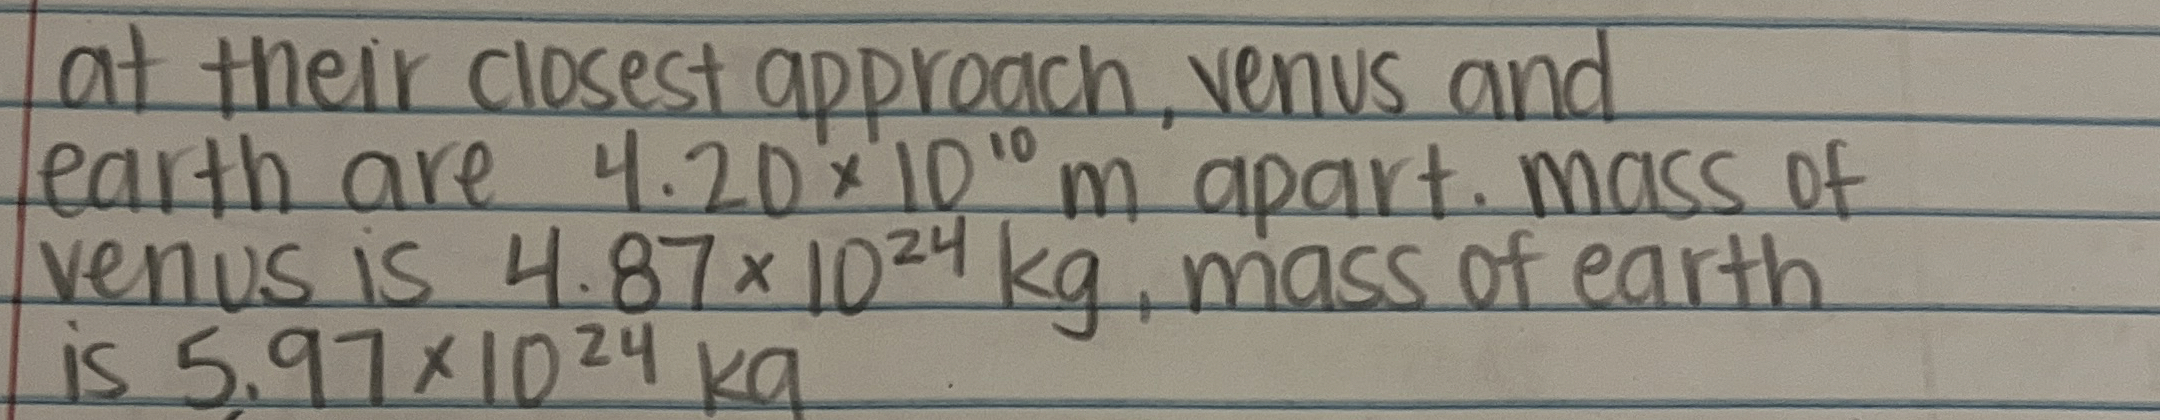 at their closest approach, venus and
earth are 4.20×10¹⁰ m apart. mass of
venus is 4.87×10²⁴ kg, mass of earth
is 5.97×10²⁴ kg